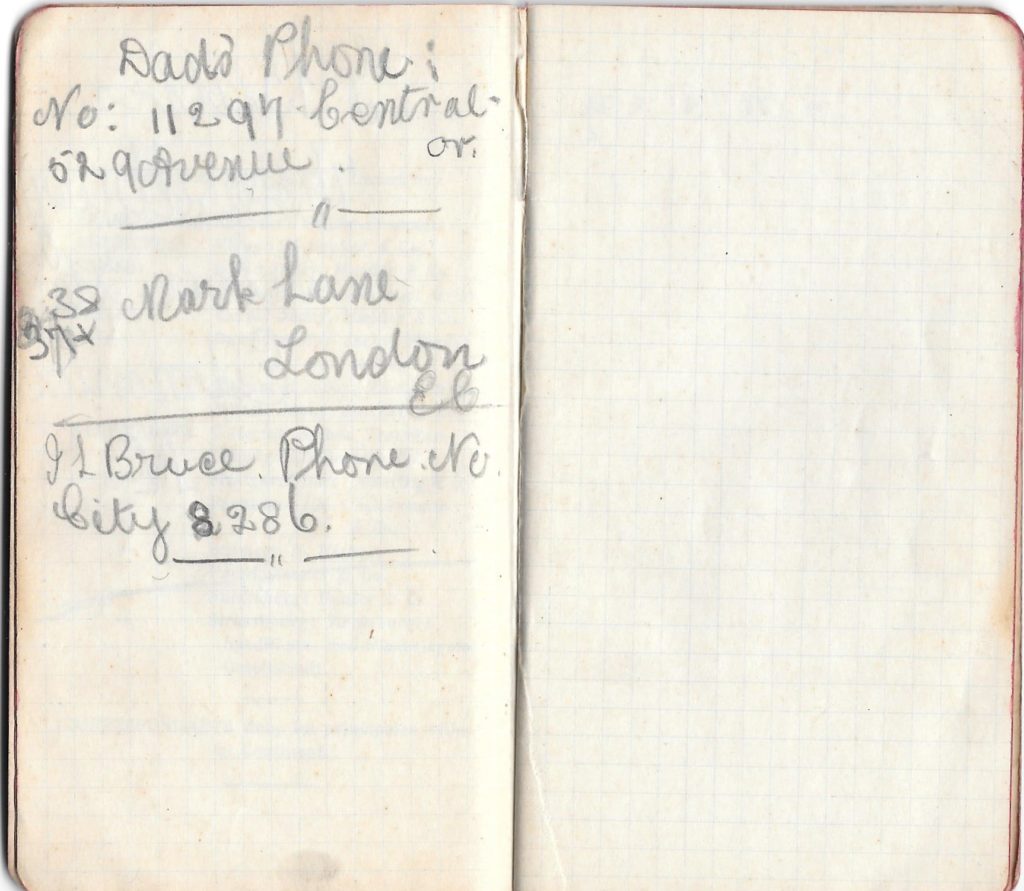 Dad's Phone:
No: 11297 Central.
or.
529 Avenue.
38 Mark Lane
London
E C
J L Bruce. Phone. No.
City 8286.